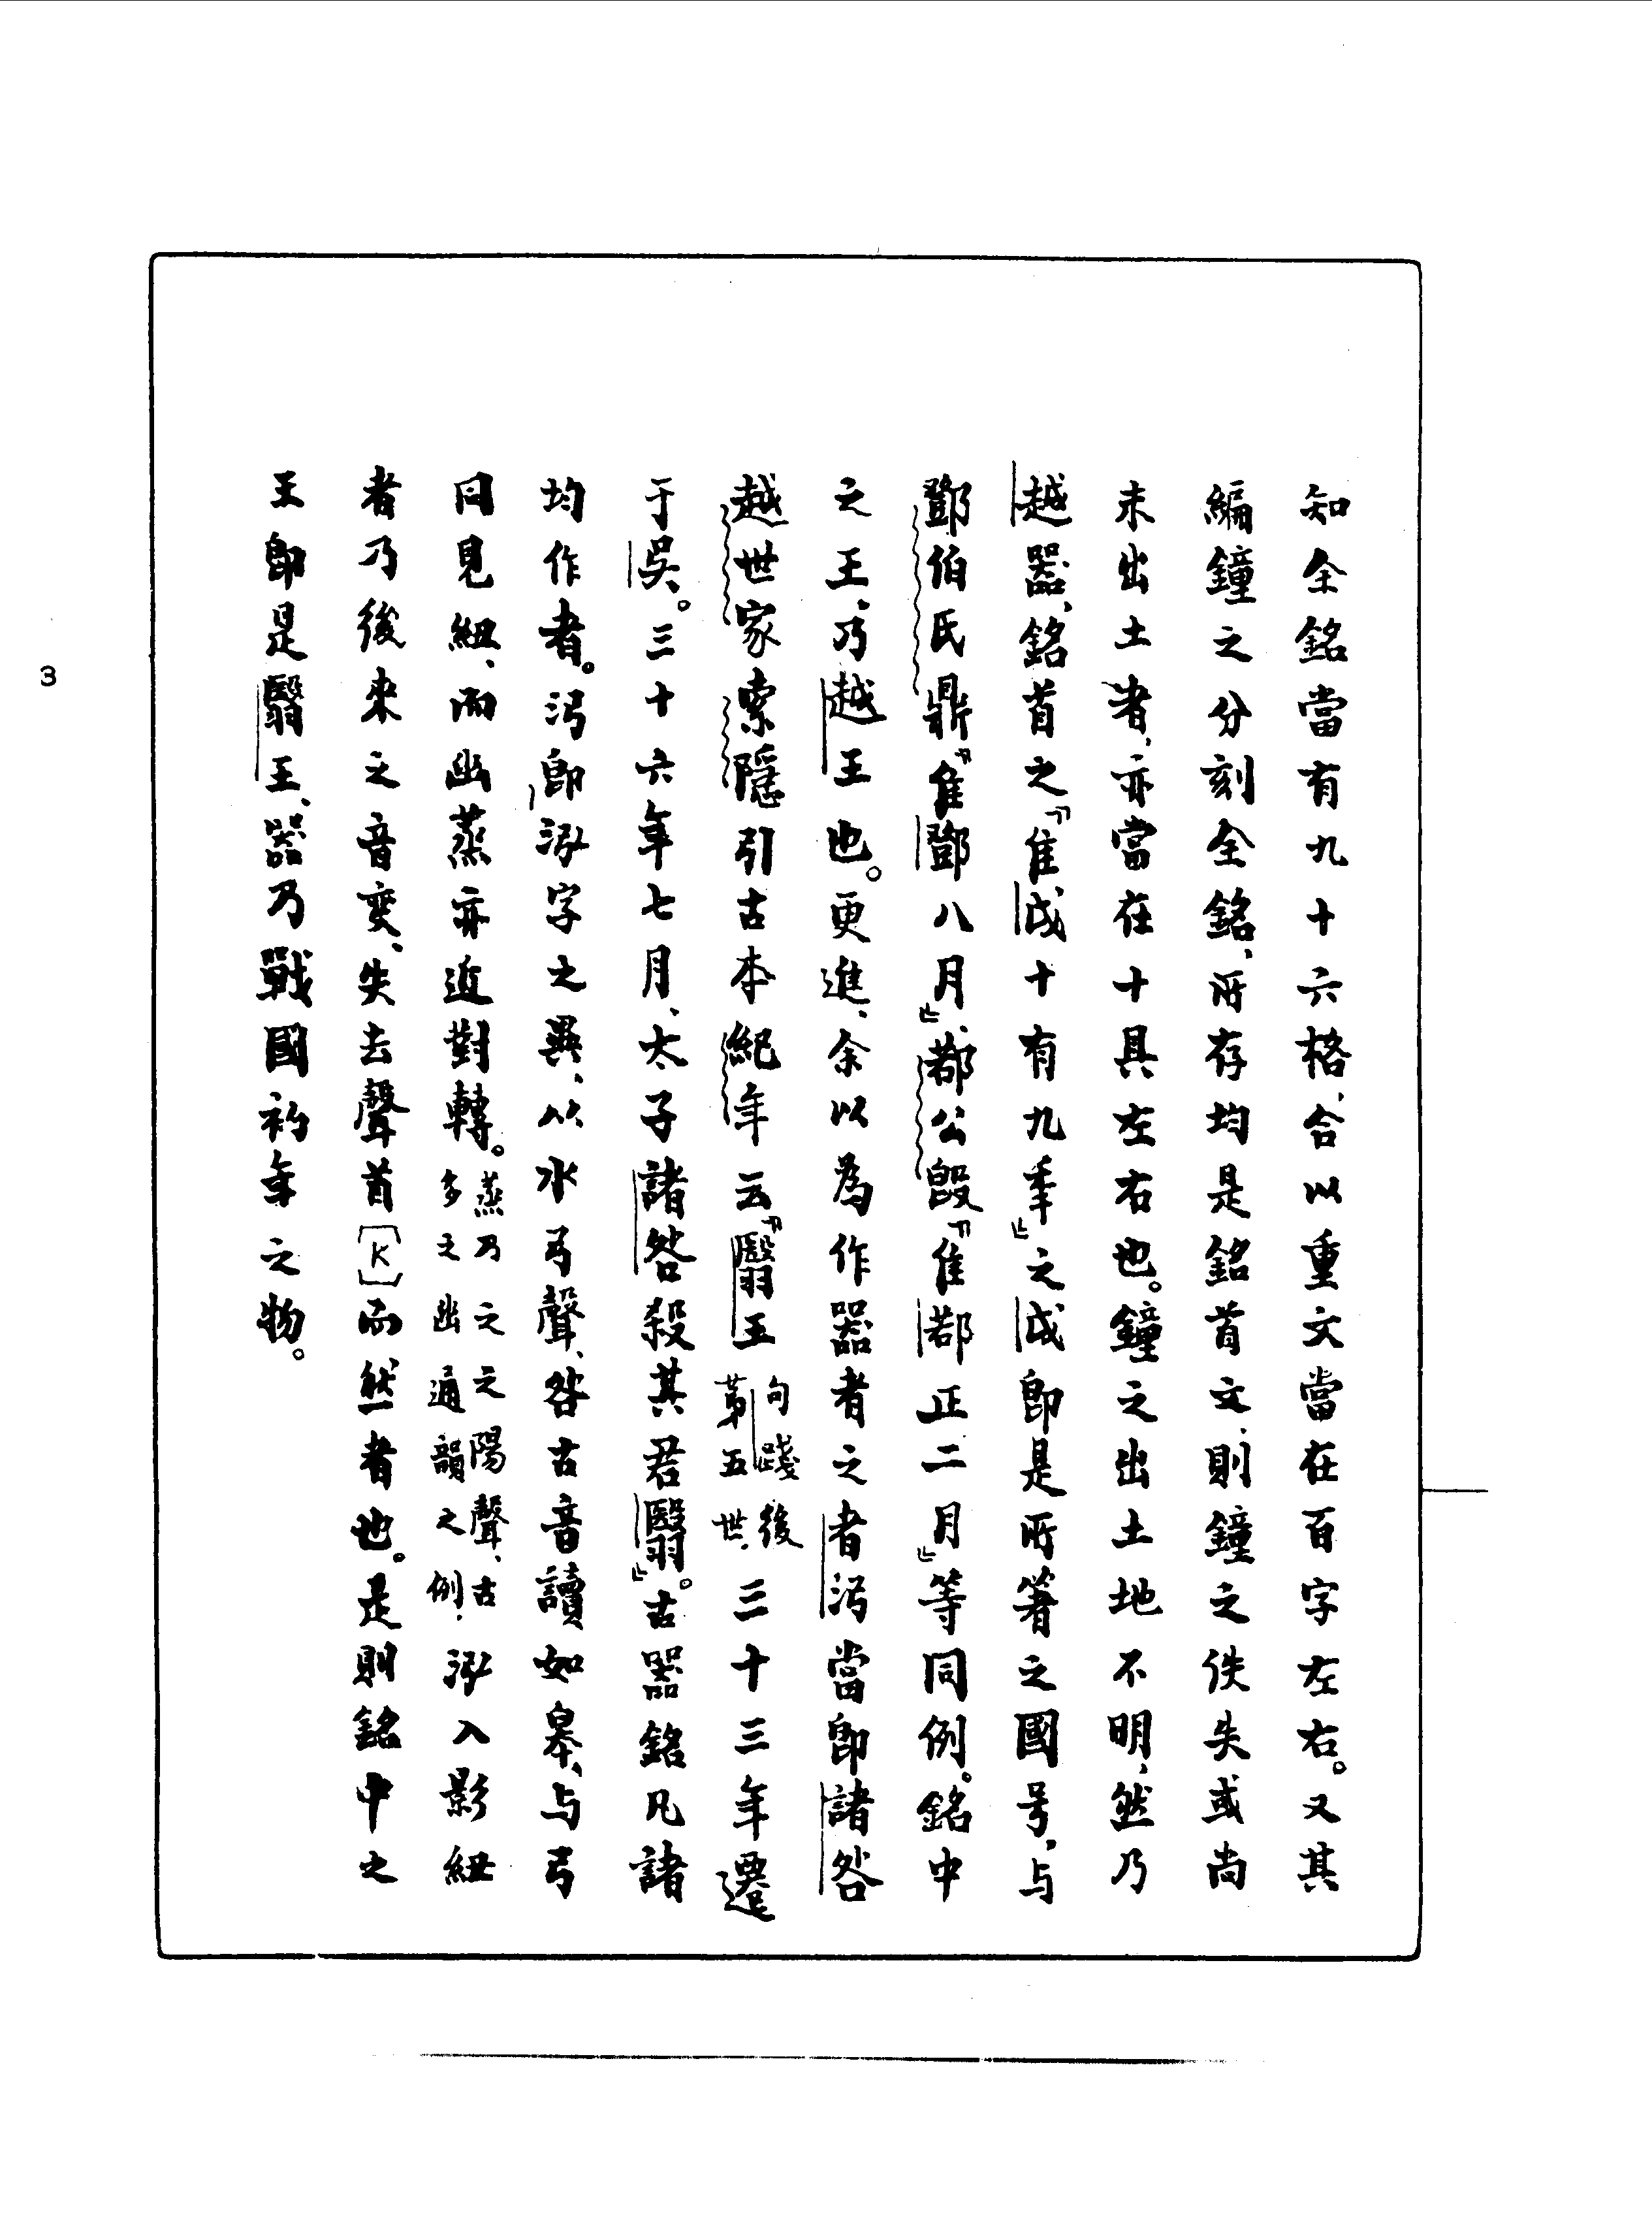 知全銘當有九十六格、合以重文當在百字左右。又其
編鐘之分刻全銘、所存均是銘首文、則鐘之佚失或尚
未出土者、亦當在十具左右也。鐘之出土地不明、然乃
越器、銘首之『隹戉十有九年』之戉即是所箸之國号、与
鄧伯氏鼎『隹鄧八月』、鄀公𣪘『隹鄀正二月』等同例。銘中
之王、乃越王也。更進、余以為作器者之者汈當即諸咎
越世家索隱引古本紀年云『翳王句踐後第五世、三十三年遷
于吳。三十六年七月、太子諸咎殺其君翳』。古器銘凡諸
均作者。汈即泓字之異、从水弓聲、咎古音讀如皋、与弓
同見紐、而幽蒸亦近對轉。蒸乃之之陽聲、古多之幽通韻之例、泓入影紐
者乃後來之音變、失去聲首〔K〕而然者也。是則銘中之
王即是翳王、器乃戰國初年之物。
3